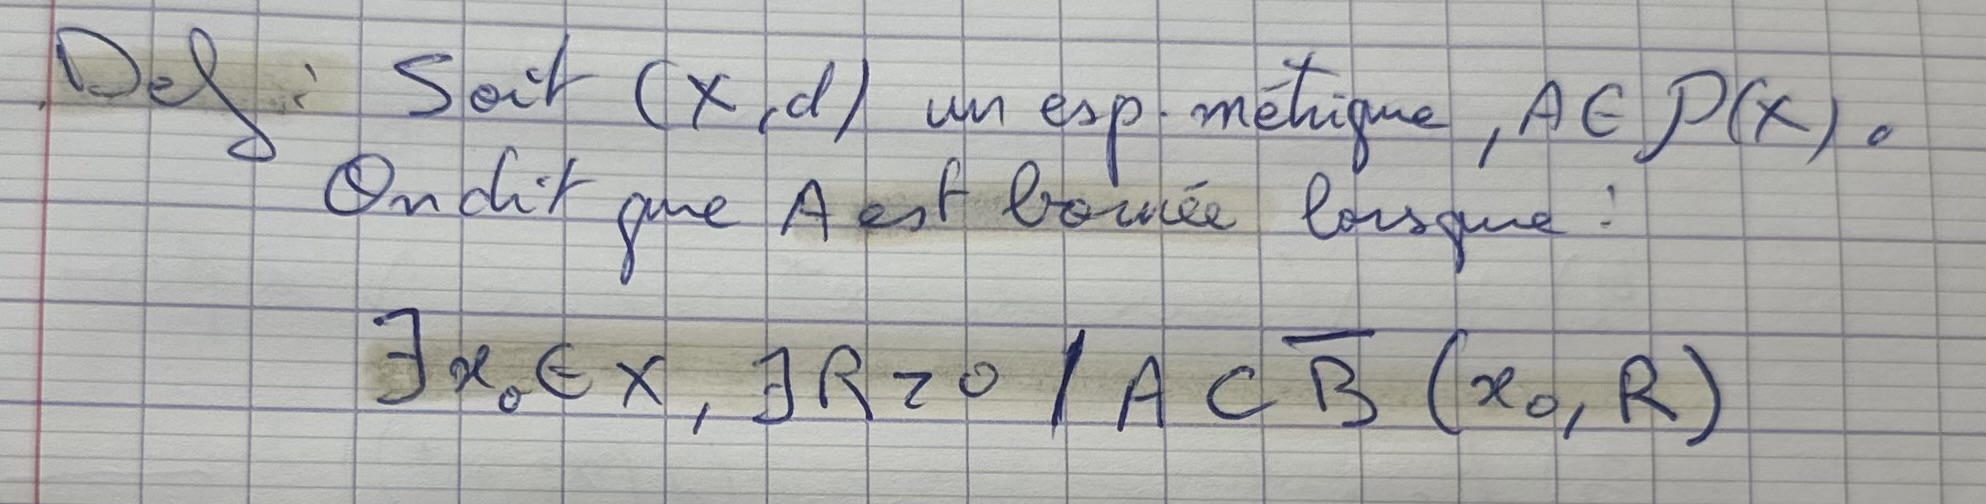 Def : Soit (X,d) un esp. métrique, A ∈ P(X).
On dit que A est bornée lorsque :
∃ x₀ ∈ X, ∃ R > 0 / A ⊂ B̅ (x₀, R)